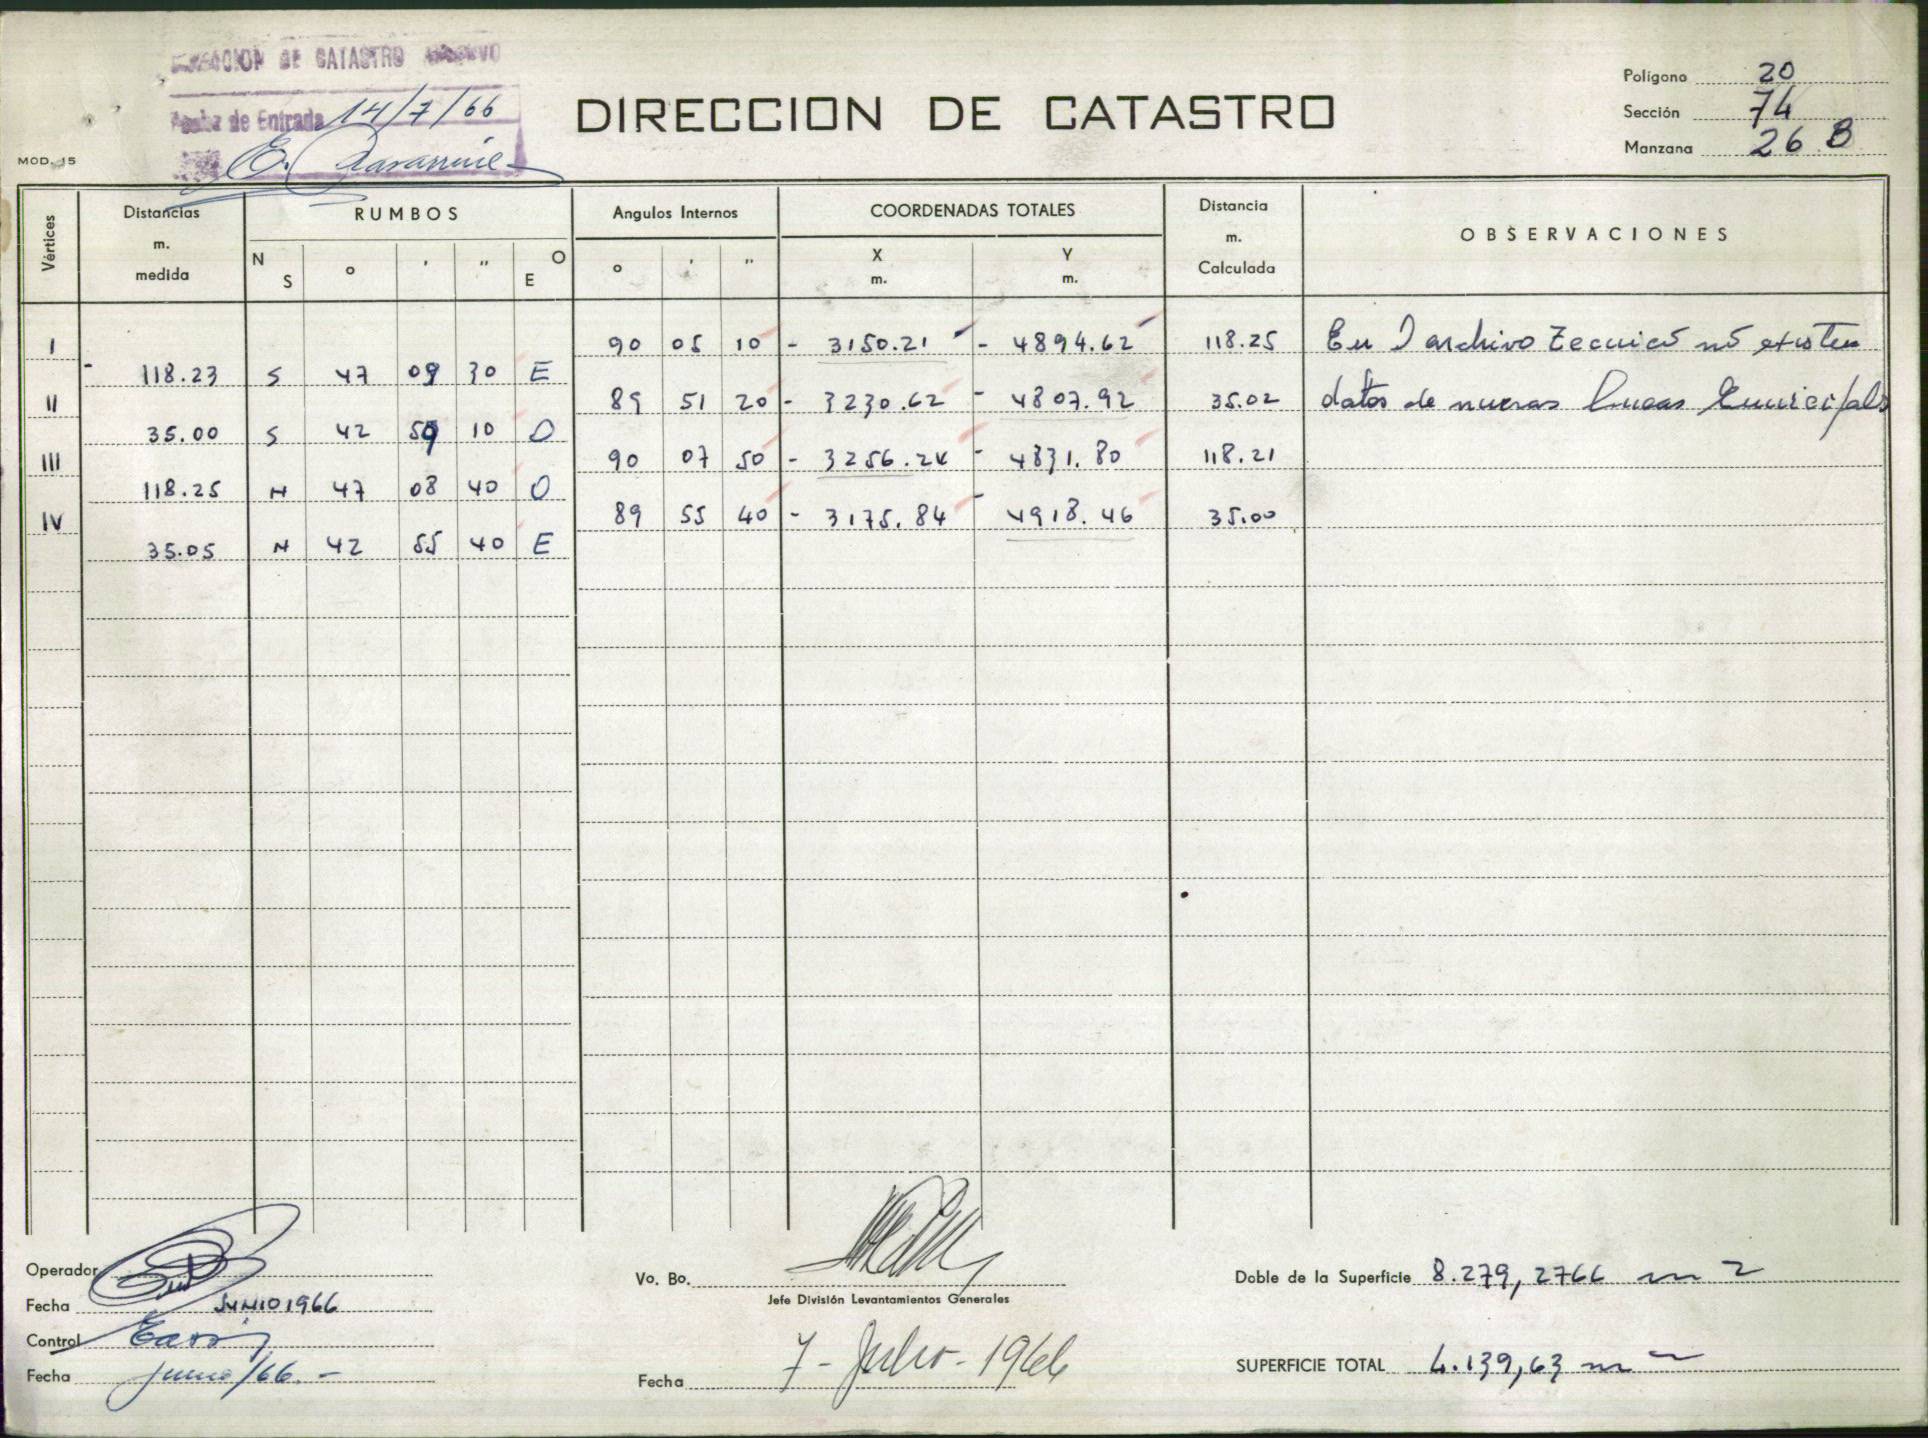 DIRECCION DE CATASTRO ARCHIVO
Fecha de Entrada 14/7/66
DIRECCION DE CATASTRO
Polígono 20
Sección 74
Manzana 26 B
MOD. 15
Vértices
Distancias m. medida
RUMBOS
N S ° ' " O E
Angulos Internos
° ' "
COORDENADAS TOTALES
X m. Y m.
Distancia m. Calculada
OBSERVACIONES
I 90 05 10 - 3150.21 - 4894.62 118.25 En archivo tecnico no existen
118.23 S 47 09 30 E
II 89 51 20 - 3230.62 - 4807.92 35.02 datos de nuevas lineas
35.00 S 42 59 10 O
III 90 07 50 - 3256.24 - 4831.80 118.21
118.25 N 47 08 40 O
IV 89 55 40 - 3175.84 - 4918.46 35.00
35.05 N 42 55 40 E
Operador
Fecha JUNIO 1966
Control
Fecha junio/66.-
Vo. Bo.
Jefe División Levantamientos Generales
Fecha 7 - Julio - 1966
Doble de la Superficie 8.279,2766 m2
SUPERFICIE TOTAL 4.139,63 m2